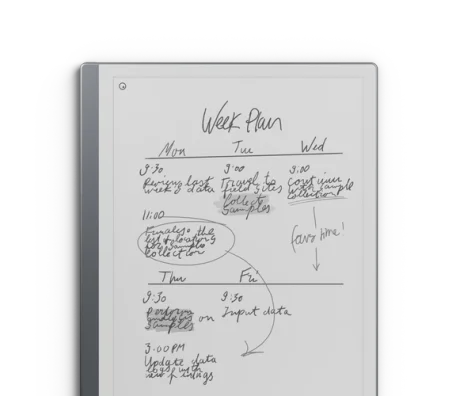 Week Plan
Mon Tue Wed
9:30
Review last
week's data
11:00
Finalise the
list of locations
for sample
collection
9:00
Travel to
field sites
Collect
samples
9:00
Continue
with sample
collection
Thu Fri
9:30
Perform
analysis on
samples
3:00 PM
Update data
logs with
9:30
Input data